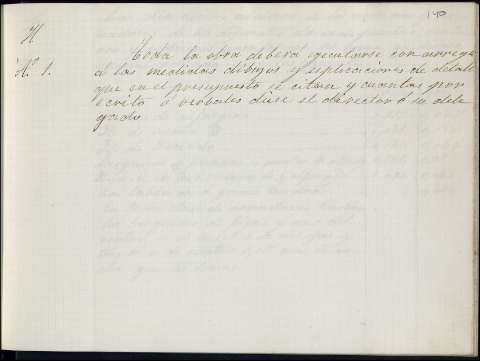 140
H
Nº 1. Toda la obra deberá ejecutarse con arreglo
á las medidas dibujos y esplicaciones de detalle
que en el presupuesto se citan y cuantas por
escrito ó verbales diese el director ó su dele
gado.